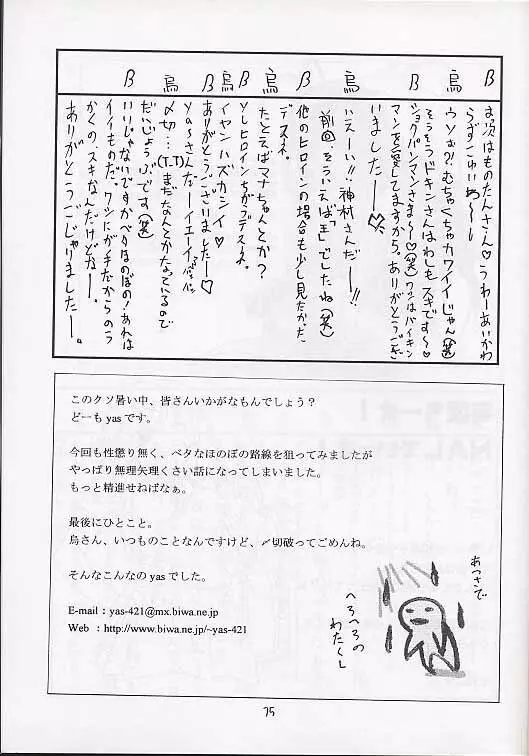 β お次はものたんさん♡うわーあいかわ
らずすごゅいゎ～～し
烏 ウソぉ?!むちゃくちゃカワイイじゃん(笑)
β そうそうドキンさんはわしもスキです～♡
ショクパンマンさまから♡(笑)ワシはバイキン
マンを愛してますから。ありがとうござ
いました―♡
烏 いえーい!!神村さんだー!!
前回、そういえば「王」でしたね(笑)
β 他のヒロインの場合も少し見たかった
デスネ。
烏 たとえばマナちゃんとか?
β ソレヒロインちがうデスネ。
烏 イヤンハズカシイ♡
β ありがとうございましたー♡
yaSさんだーイエーイ。パパパン
烏 〆切…(T.T)まだなんとかなっているので
だいじょうぶです(笑)
β いいじゃないですかベタなほのぼの!あれは
イイものだ。ワシにがチだからのう
かくの、スキなんだけどなー。
ありがとうごじゃりましたー。
このクソ暑い中、皆さんいかがなもんでしょう？
どーも yas です。
今回も性懲り無く、ベタなほのぼの路線を狙ってみましたが
やっぱり無理矢理くさい話になってしまいました。
もっと精進せねばなぁ。
最後にひとこと。
烏さん、いつものことなんですけど、〆切破ってごめんね。
そんなこんなの yas でした。
E-mail : yas-421@mx.biwa.ne.jp
Web : http://www.biwa.ne.jp/~yas-421
あつさで
へろへろの
わたくし
75